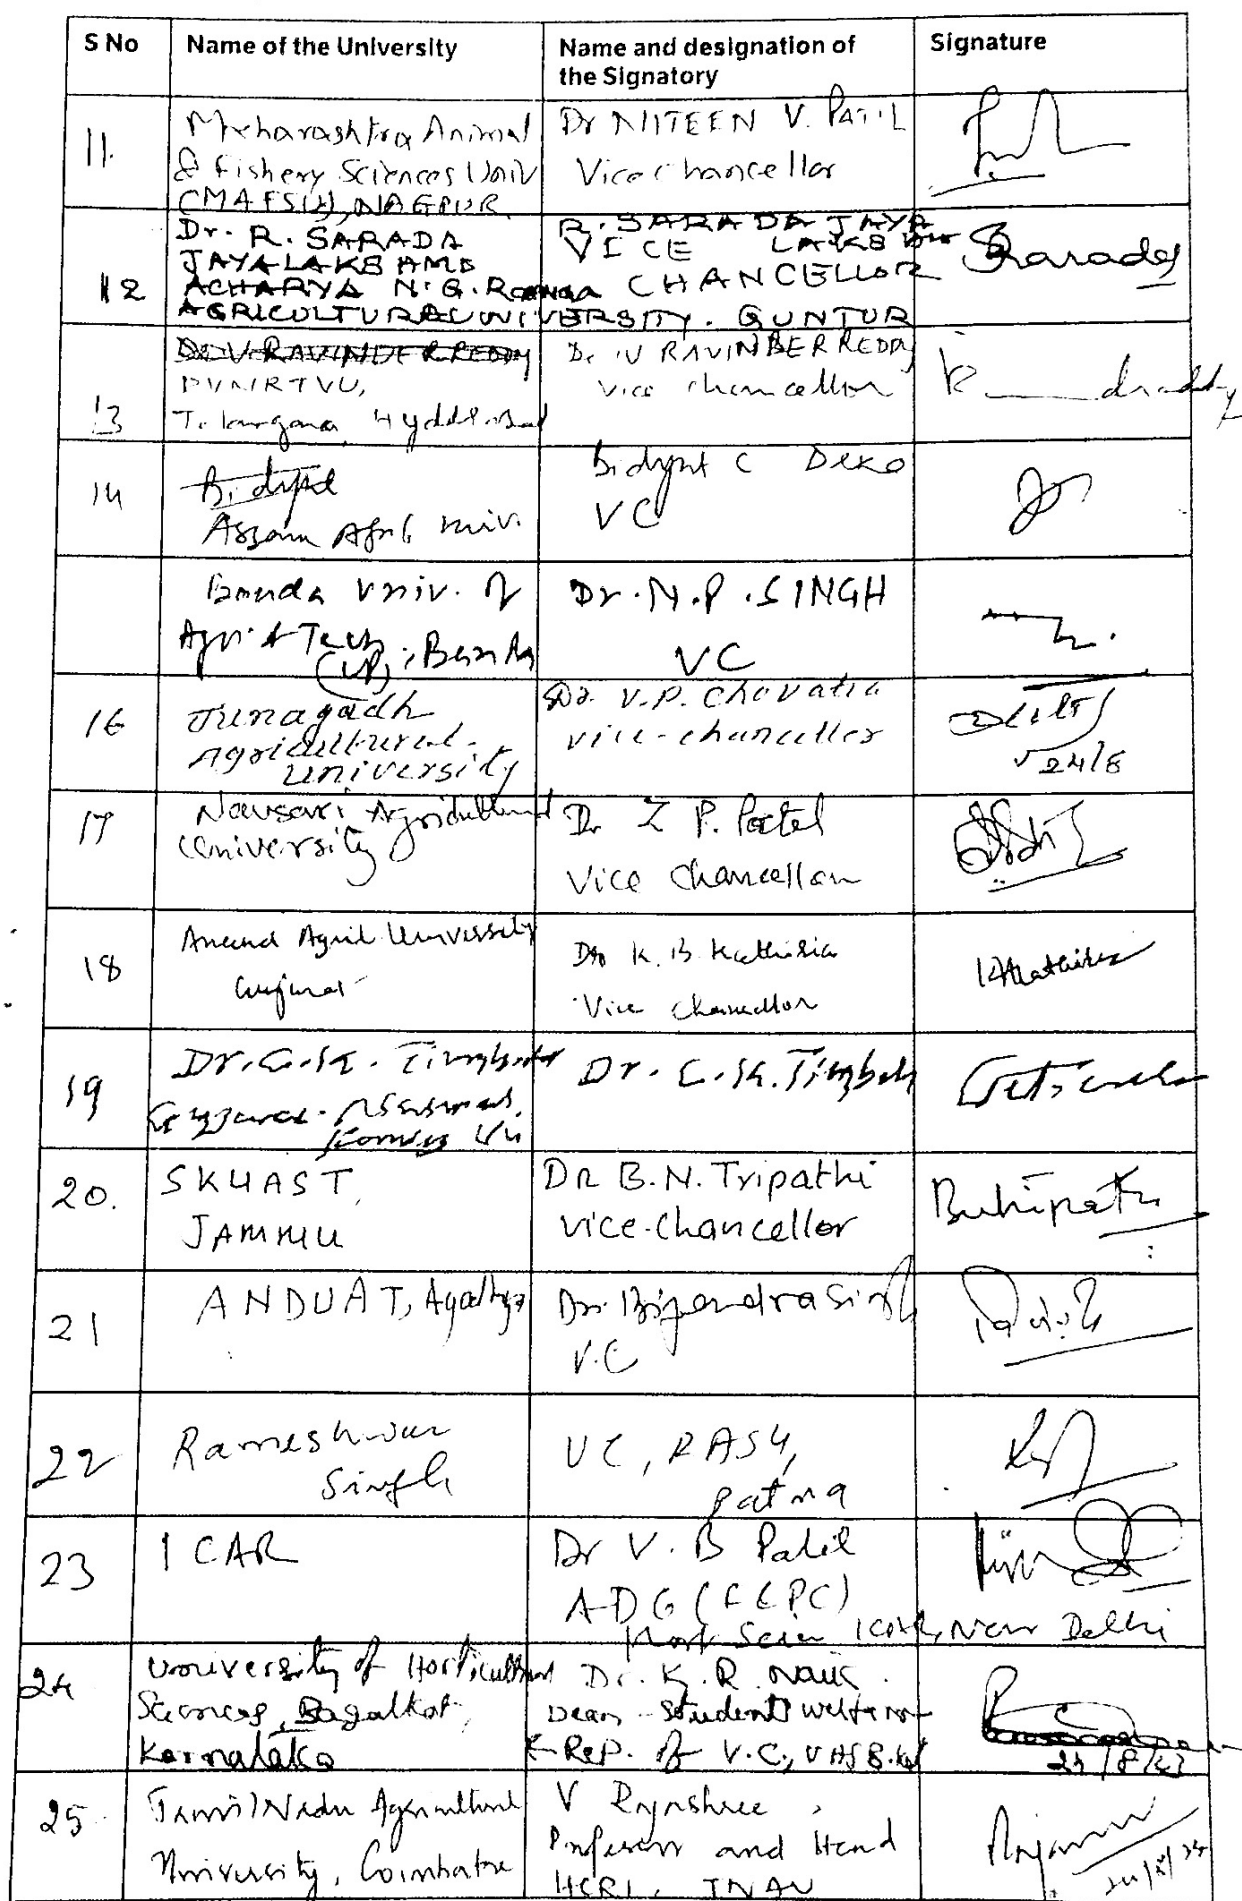 S No Name of the University Name and designation of the Signatory Signature
11. Maharashtra Animal & Fishery Sciences Univ (MAFSU), NAGPUR. Dr NITEEN V. PATIL Vice Chancellor
12 Dr. R. SARADA JAYALAKSHMI ACHARYA N.G. Ranga AGRICULTURAL UNIVERSITY. GUNTUR R. SARADA JAYA LAKSHMI VICE CHANCELLOR Sharadaj
13 Dr V. RAVINDER REDDY PVNRTVU, Telangana, Hyderabad Dr V RAVINDER REDDY Vice Chancellor
14 Bidyut Assam Agril Univ. Bidyut C Deka VC
Banda Univ. of Agri & Tech (UP), Banda Dr. N.P. SINGH VC
16 Junagadh Agricultural University Dr. V.P. Chovatia vice-chancellor 24/8
17 Navsari Agricultural University Dr Z P. Patel Vice Chancellor
18 Anand Agril University Gujarat Dr K. B. Kathiria Vice Chancellor
19 Dr. C.K. Timbadia Gujarat Dr. C.K. Timbadia
20. SKUAST, JAMMU DR B.N. Tripathi Vice-Chancellor
21 ANDUAT, Ayodhya Dr. Bijendra Singh V.C
22 Rameshwar Singh VC, BASU, Patna
23 ICAR Dr V. B Patil ADG ICAR, New Delhi
24 University of Horticultural Sciences, Bagalkot, Karnataka Dr. K. R. Naik. Dean Student Welfare & Rep. of V.C., UHS B.kot
25 Tamil Nadu Agricultural University, Coimbatore V Rajashree, Professor and Head HCRI, TNAU